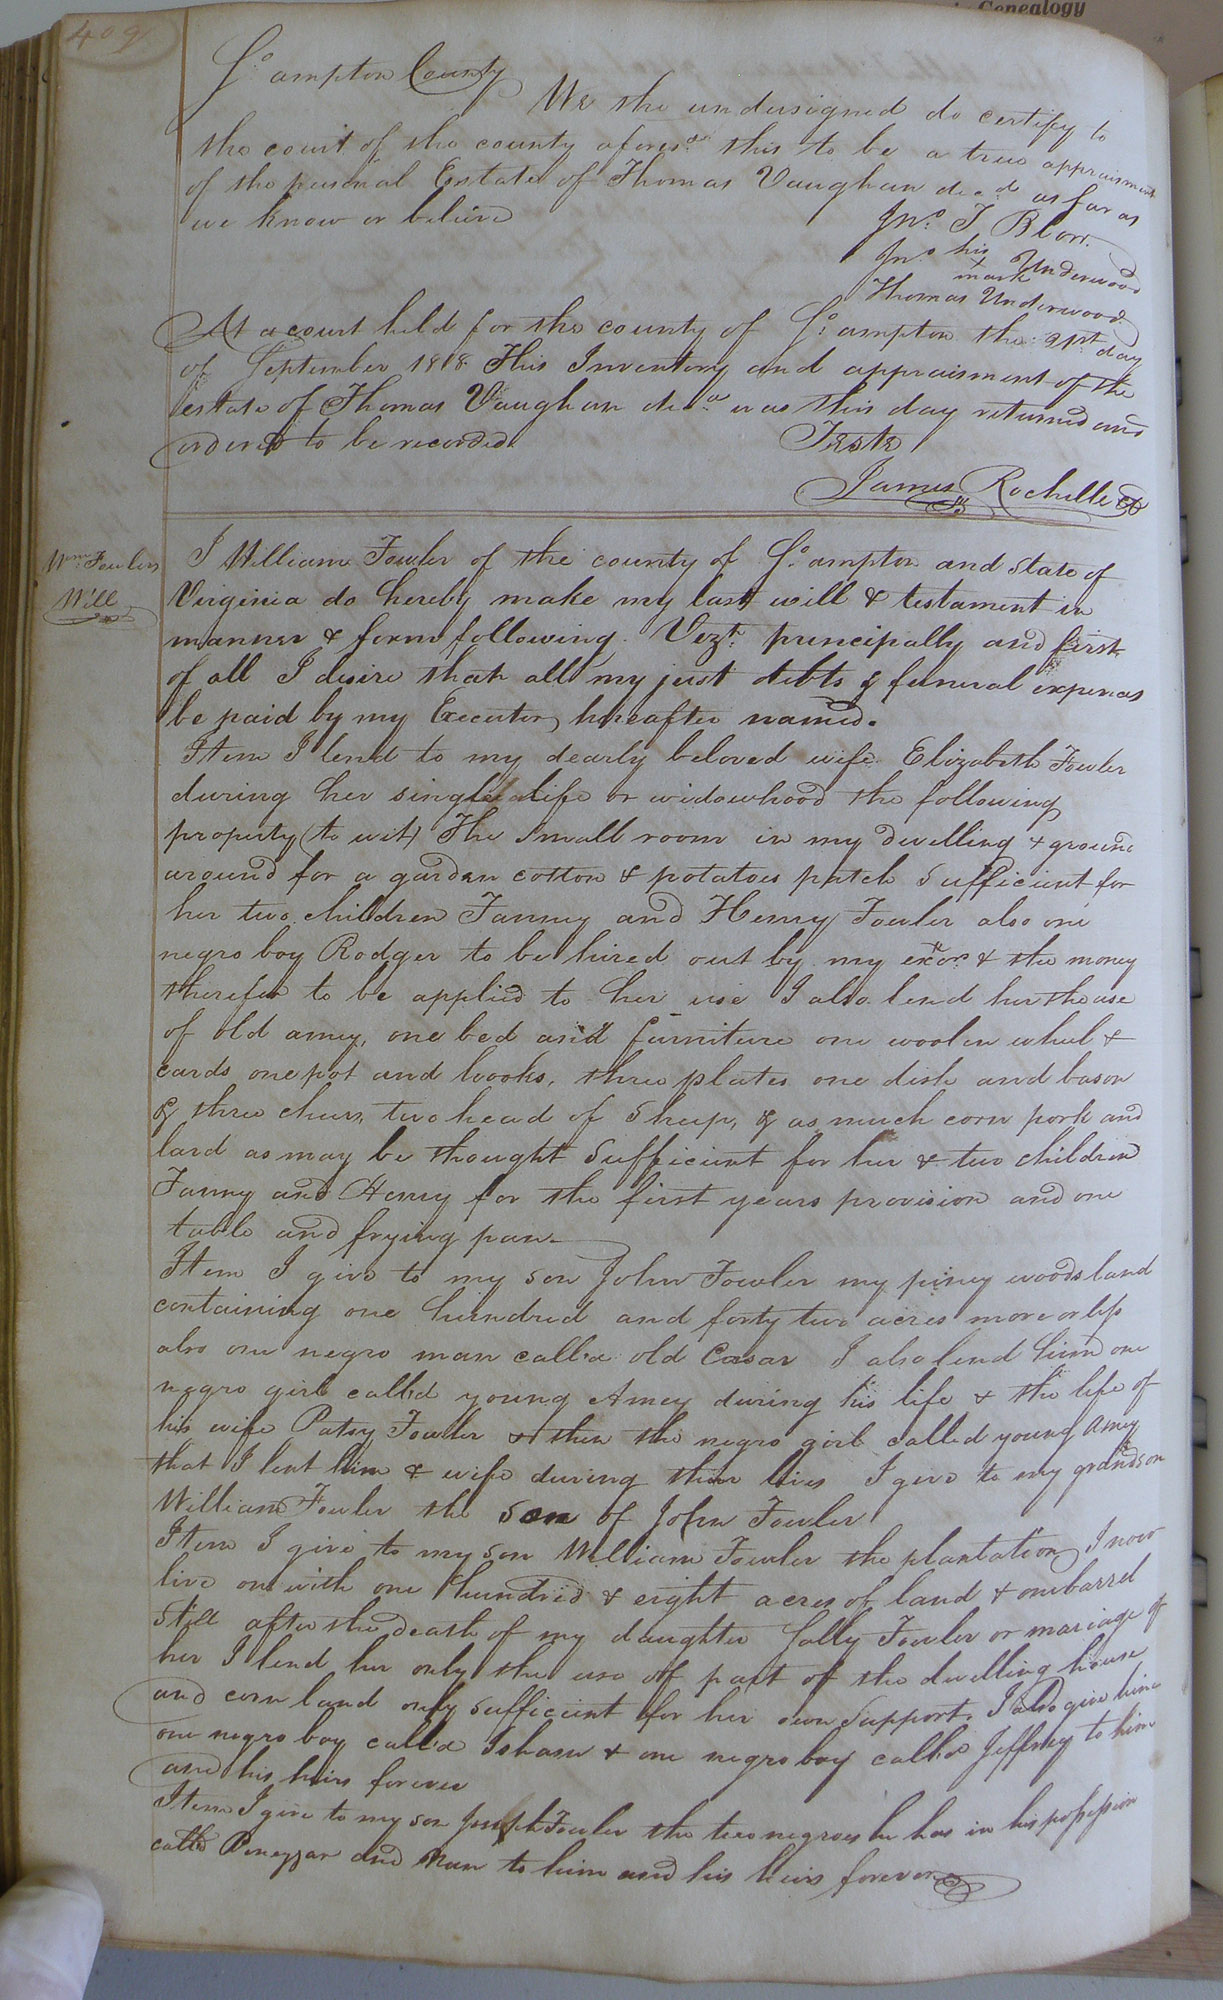 Genealogy
409
So ampton County
We the undersigned do certify to
the court of the county aforesd this to be a true appraisment
of the personal Estate of Thomas Vaughan decd as far as
we know or believe
Jno. T. Blow.
Jno his Underwood
x
mark
Thomas Underwood.
At a court held for the county of So. ampton the 21st day
of September 1818 This Inventory and appraisment of the
estate of Thomas Vaughan decd was this day returned and
ordered to be recorded.
Teste
James Rochelle
Wm. Fowlers
Will
I William Fowler of the county of So. ampton and State of
Virginia do hereby make my last will & testament in
manner & form following. Vizt. principally and first
of all I desire that all my just debts & funeral expences
be paid by my Executor, hereafter named.
Item I lend to my dearly beloved wife Elizabeth Fowler
during her single life or widowhood the following
property (to wit) The Small room in my dwelling & ground
around for a garden cotton & potatoes patch Sufficient for
her two children Fanney and Henry Fowler also one
negro boy Rodger to be hired out by my exor. & the money
therefor to be applied to her use I also lend her the use
of old amey, one bed and furniture one woolen wheel &
cards one pot and hooks, three plates one dish and bason
& three chears, two head of Sheep, & as much corn pork and
lard as may be thought Sufficient for her & two children
Fanny and Henry for the first years provision and one
table and frying pan.
Item I give to my son John Fowler my piney woods land
containing one hundred and forty two acres more or less
also one negro man call'd old Casar I also lend him one
negro girl call'd young Amey during his life & the life of
his wife Patsy Fowler & then the negro girl called young Amey
that I lent him & wife during their lives I give to my grandson
William Fowler the Son of John Fowler
Item I give to my son William Fowler the plantation I now
live on with one hundred & eight acres of land & one barrel
Still after the death of my daughter Sally Fowler or mariage of
her I lend her only the use off part of the dwelling house,
and corn land only Sufficient for her own Support. I also give him
one negro boy call'd Isham & one negro boy call'd Jeffrey to him
and his heirs forever
Item I give to my son Joseph Fowler the two negroes he has in his possession
calld and Nan to him and his heirs forever